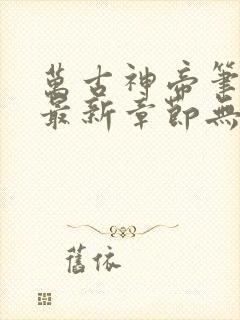 萬古神帝筆
最新章節無
舊依